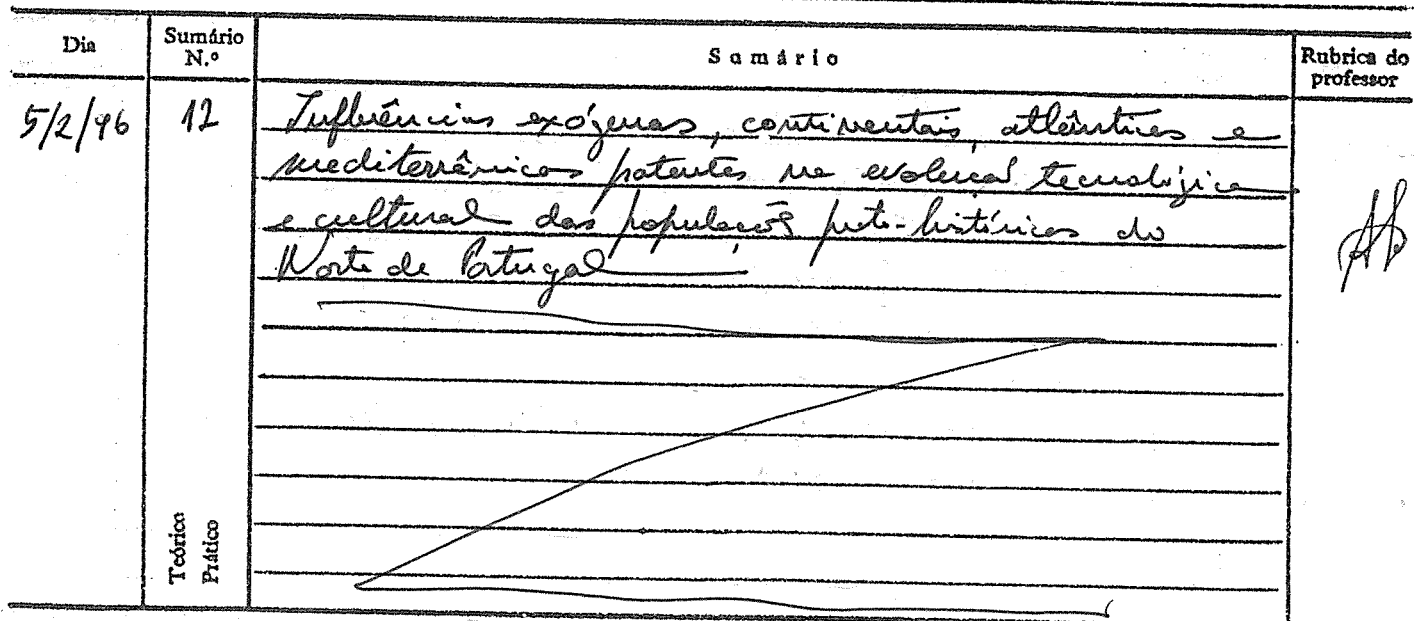 Dia
Sumário
N.º
Sumário
Rubrica do
professor
5/2/96
12
Influências exógenas, continentais, atlânticas e
mediterrânicas patentes na evolução tecnológica
e cultural das populações proto-históricas do
Norte de Portugal
Teórico
Prático